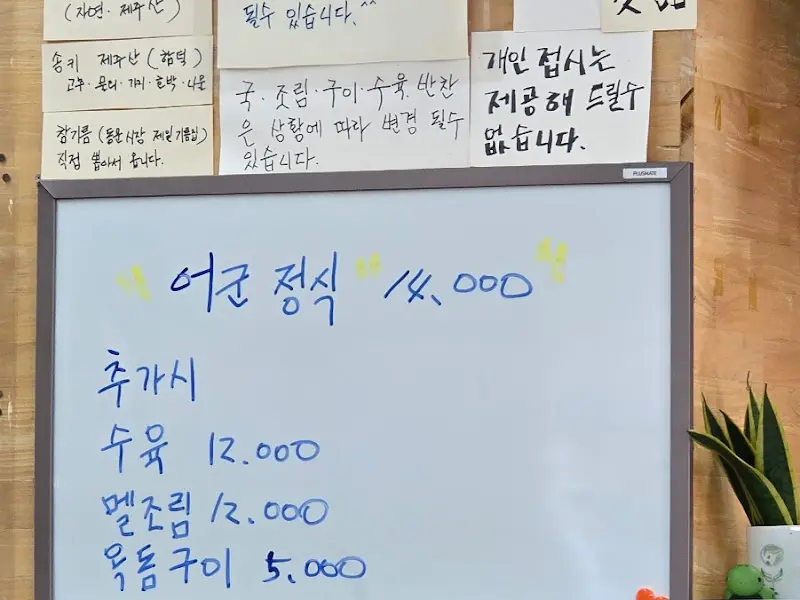 (자연·제주산)
될수 있습니다.^^
송키 제주산 (함덕)
고추·
호박·
참기름 (동문시장 제일기름집)
직접 뽑아서 옵니다.
국·조림·구이·수육, 반찬
은 상황에 따라 변경 될수
있습니다.
개인 접시는
제공해 드릴수
없습니다.
PLUSMATE
어군 정식 14.000
추가시
수육 12.000
멜조림 12.000
옥돔구이 5.000